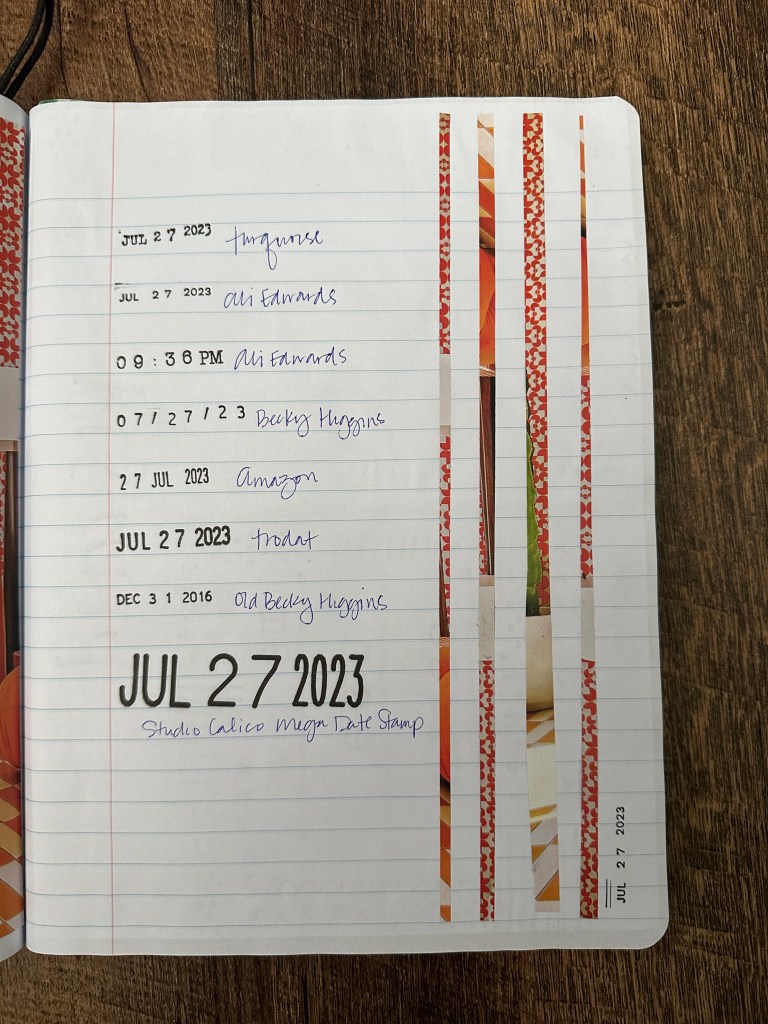 JUL 27 2023 turquoise
JUL 27 2023 Ali Edwards
09:36 PM Ali Edwards
07/27/23 Becky Higgins
27 JUL 2023 Amazon
JUL 27 2023 trodat
DEC 31 2016 Old Becky Higgins
JUL 27 2023
Studio Calico Mega Date Stamp
JUL 27 2023